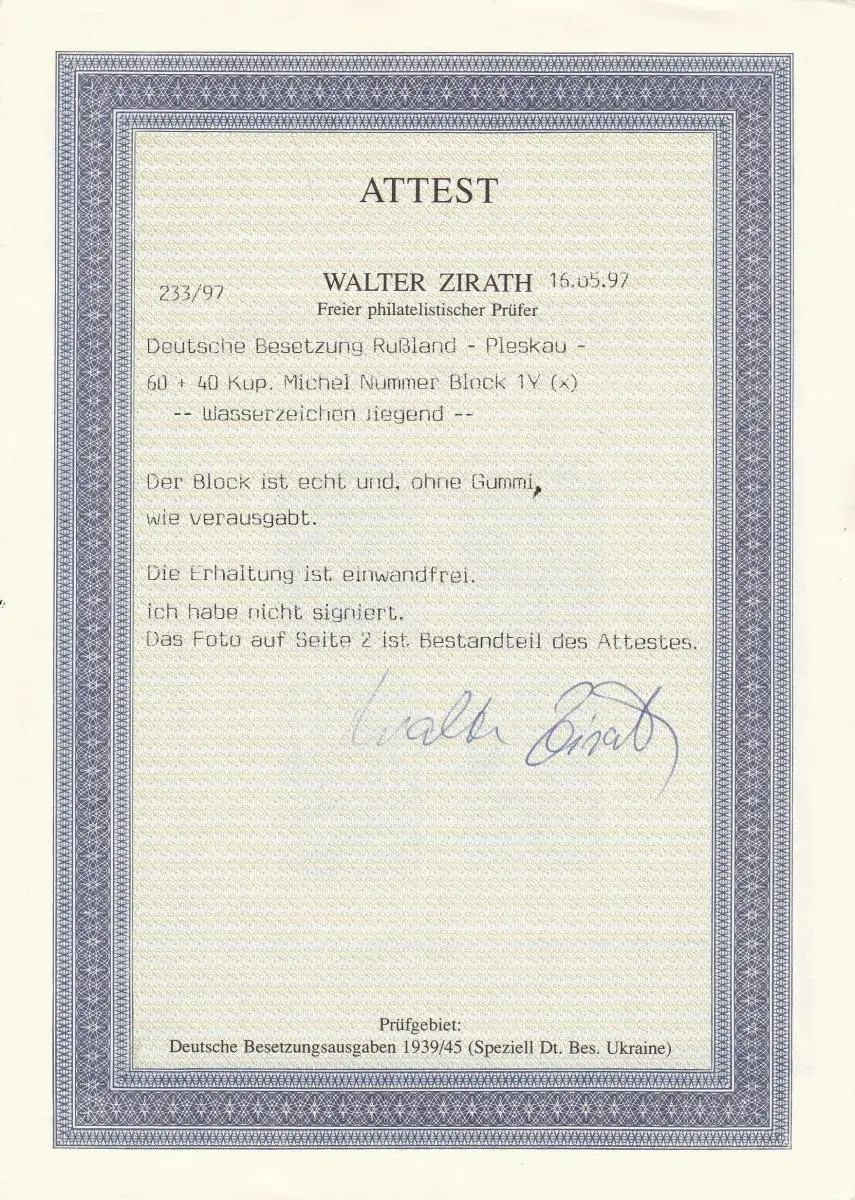 ATTEST
233/97 WALTER ZIRATH 16.05.97
Freier philatelistischer Prüfer
Deutsche Besetzung Rußland - Pleskau -
60 + 40 Kop. Michel Nummer Block 1Y (x)
-- Wasserzeichen liegend --
Der Block ist echt und, ohne Gummi,
wie verausgabt.
Die Erhaltung ist einwandfrei.
ich habe nicht signiert.
Das Foto auf Seite 2 ist Bestandteil des Attestes.
Walter Zirath
Prüfgebiet:
Deutsche Besetzungsausgaben 1939/45 (Speziell Dt. Bes. Ukraine)